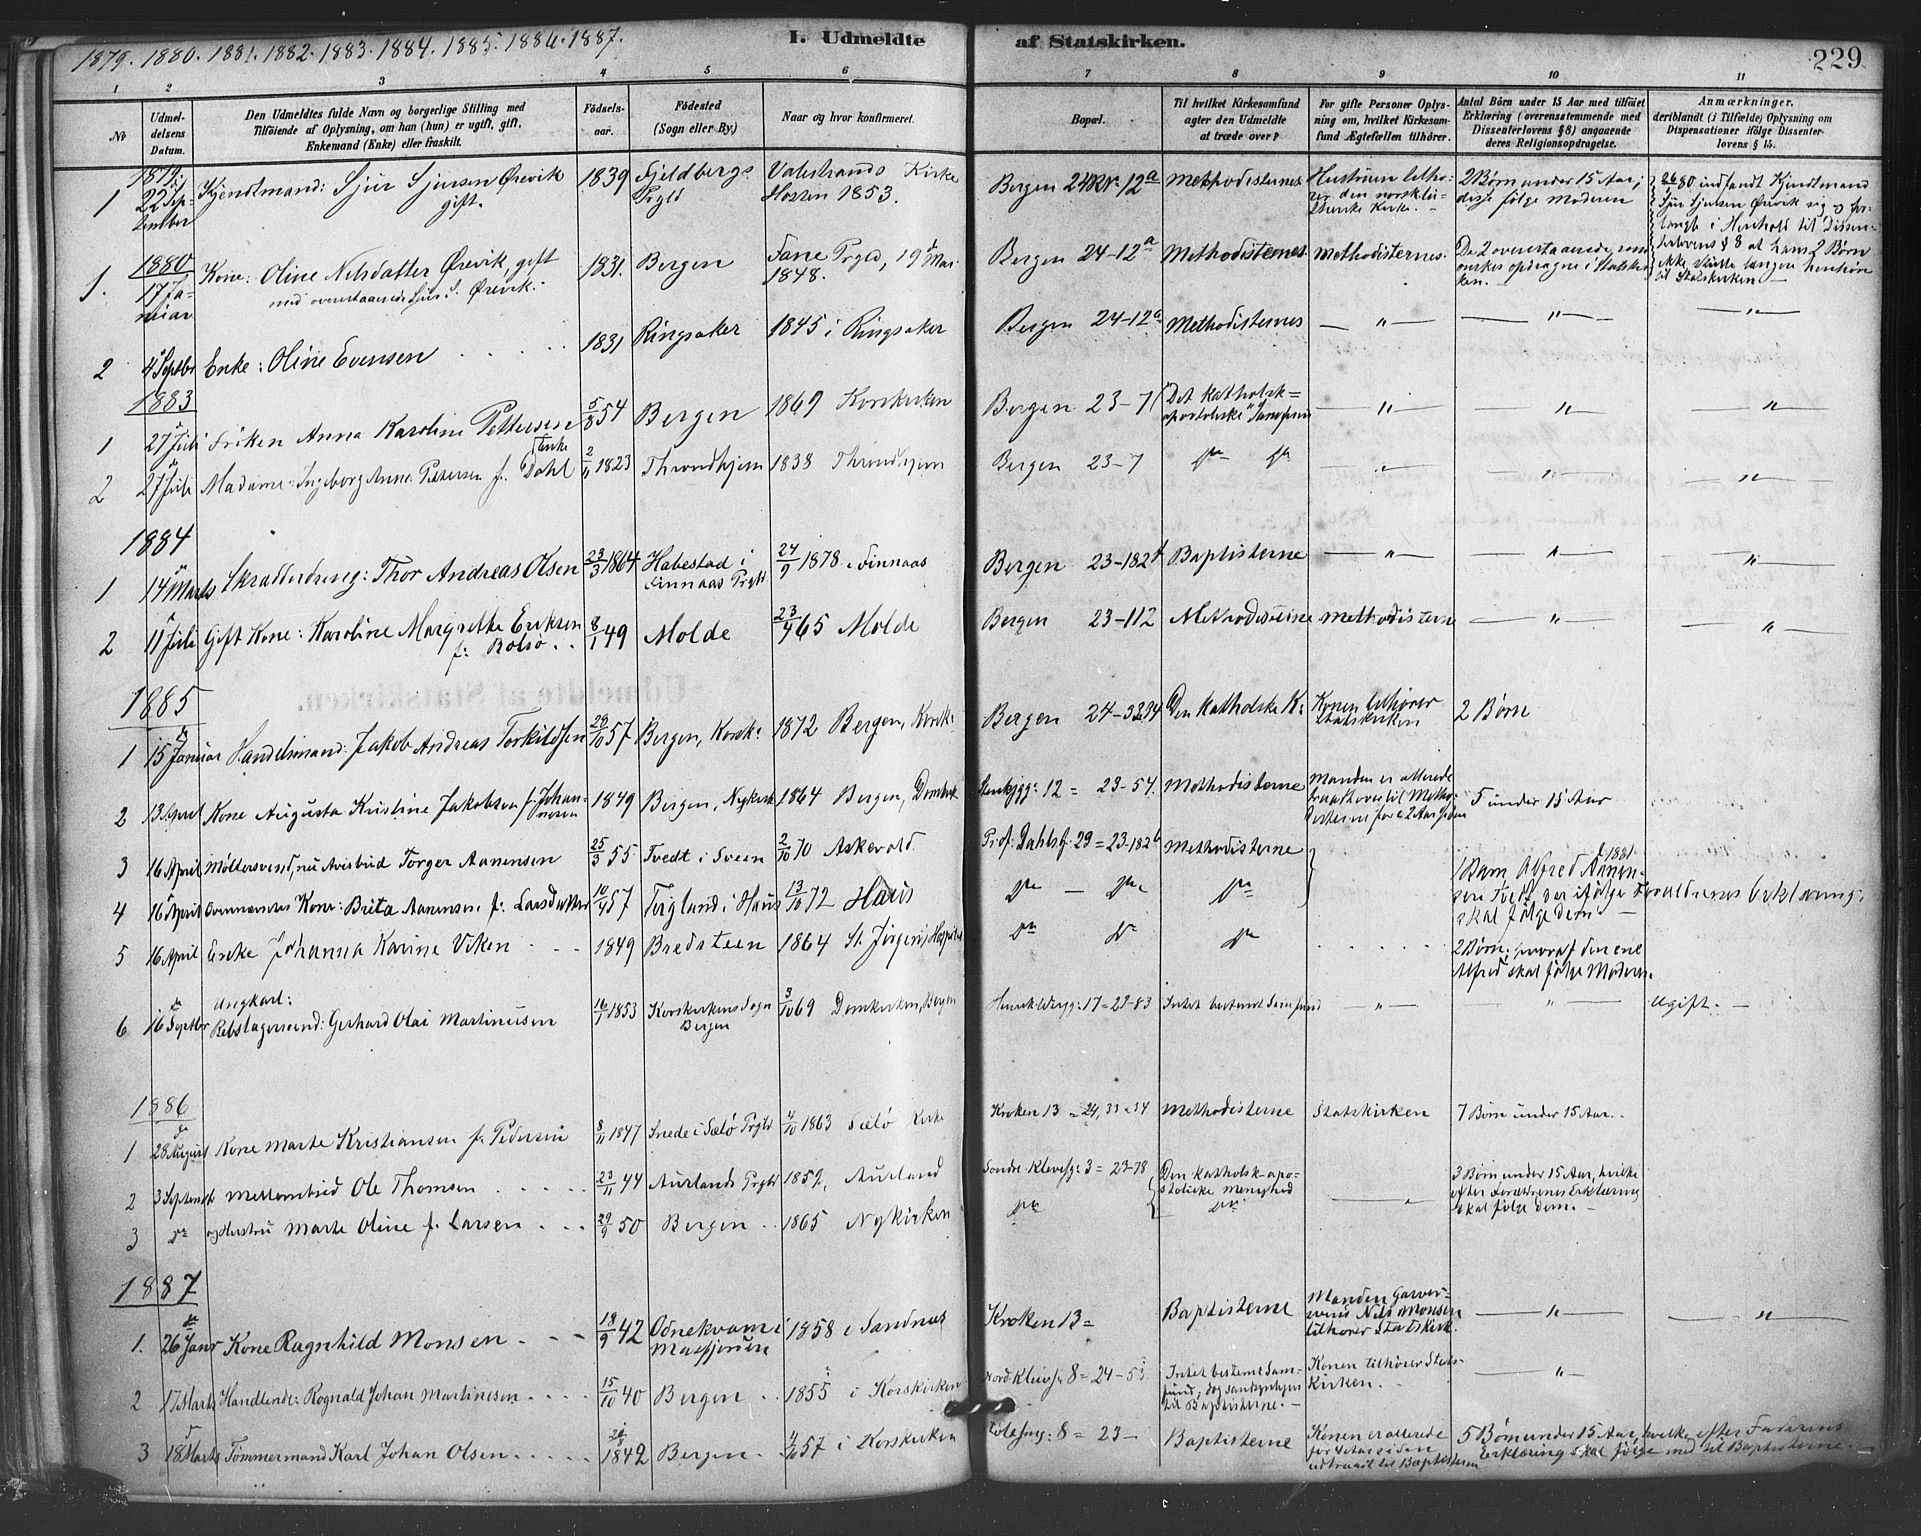 1879. 1880. 1881. 1882. 1883. 1884. 1885. 1886. 1887.
I. Udmeldte af Statskirken.
229
1 2 3 4 5 6 7 8 9 10 11
No
Udmeldelsens Datum.
Den Udmeldtes fulde Navn og borgerlige Stilling med
Tilføiende af Oplysning, om han (hun) er ugift, gift,
Enkemand (Enke) eller fraskilt.
Fødselsaar.
Fødested
(Sogn eller By.)
Naar og hvor konfirmeret.
Bopæl.
Til hvilket Kirkesamfund
agter den Udmeldte
at træde over?
For gifte Personer Oplysning om, hvilket Kirkesamfund Ægtefællen tilhører.
Antal Børn under 15 Aar med tilføiet
Erklæring (overensstemmende med
Dissenterlovens § 8) angaaende
deres Religionsopdragelse.
Anmærkninger,
deriblandt (i Tilfælde) Oplysning om
Dispensationer ifølge Dissenterlovens § 15.
1879.
1 22 September Kjendtmand: Sjur Sjursen Ørevik gift. 1839 Fjeldbergs Prgld Valestrands Kirke Høsten 1853. Bergen 24 Rk. 12a Methodisternes Hustruen tilhører den norsk lutherske Kirke. 2 Børn under 15 Aar; disse følge Moderen indfandt Kjendtmand Sjur Sjursen Ørevik sig og forlangte i Henhold til Dissenterlovens § 8 at hans 2 Børn ikke skulde længere henhøre til Statskirken
1880
1. 17 Januar Kone: Oline Nilsdatter Ørevik, gift med ovenstaaende Sjur S. Ørevik. 1831. Bergen Fane Prgld, 19 Mai 1848. Bergen 24-12a Methodisternes methodisternes. De 2 ovenstaaende, som ønskes opdragne i Statskirken.
2 4 Septbr Enke: Oline Evensen 1831 Ringsaker 1845 i Ringsaker Bergen 24-12a Methodisternes — " — — " — — " —
1883
1 27 Juli Frøken Anna Karoline Pettersen 5/8 54 Bergen 1869 Korskirken Bergen 23-7 Det katholsk= apostolske Samfund — " — — " — — " —
2 27 Juli Madame: Ingeborg Anna Petersen f. Dahl Enke 2/11 1823 Throndhjem 1838 Throndhjem Bergen 23-7 do do — " — — " — — " —
1884
1 14 Marts Skrædderdreng: Thor Andreas Olsen 23/3 1864 Habestad i Finnaas Prgld 24/9 1878 i Finnaas Bergen 23-182 Baptisterne — " — — " — — " —
2 11 Juli Gift Kone: Karoline Margrethe Eriksen f. Bolsø 8/1 49 Molde 23/7 65 Molde Bergen 23-112 Methodisterne methodisterne — " — — " —
1885
1 15 Januar Handelsmand: Jakob Andreas Torkildsen 29/10 57 Bergen, Korsk: 1872 Bergen, Korsk: Bergen 24-3234 Den Katholske K: Konen tilhører Statskirken 2 Børn
2 13 April Kone Augusta Kristine Jakobsen f. Johannesen 1849 Bergen, Nykirk 1864 Bergen, Domkirk 12 = 23-54. Methodisterne Manden er allerede traadt over til Methodisterne for c. 2 Aar siden 5 under 15 Aar
3 16 April Møllersvend, nu Avisbud Torger Aanensen 25/3 55 Tvedt i Sveen 2/10 70 Askevold Prof: Dahlsg: 29 = 23-182b Methodisterne 1 Barn, Alfred Aanensen Tvedt f. 1881 der ifølge Forældrenes Erklæring skal følge dem.
4 16 April Ovennævntes Kone: Brita Aanensen f. Larsdatter 10/4 57 Fugland i Haus 13/10 72 Haus do — do do
5 16 April Enke Johanna Karine Viken 1849 Bredsteen 1864 St. Jørgens Hospital do do do 2 Børn, hvoraf den ene Alfred skal følge Moderen.
6 16 Septbr Ungkarl: Rebslagersvend: Gerhard Olai Martinussen 16/7 1853 Korskirkens Sogn Bergen 3/10 69 Domkirken, Bergen 17 = 22-83 Intet bestemt Samfund — " — — " — Ugift. —
1886
1 28 August Kone Marte Kristiansen f. Pedersen 8/11 1847 Snede i Sælø Prgld 4/10 1863 Sælø Kirke Kroken 13 = 24, 33-34 Methodisterne Statskirken 7 Børn under 15 Aar.
2 3 Septemb Mellombud Ole Thomsen 23/11 44 Aurlands Prgld 1859, Aurland Søndre Klevesg: 3 = 23-78 Den katholsk-apostoliske menighed — " 3 Børn under 15 Aar, hvilke efter Forældrenes Erklæring skal følge dem.
3 do og Hustru Marte Oline f. Larsen 29/9 50 Bergen 1865 Nykirken do do
1887
1. 26 Janr Kone Ragnhild Monsen 18/9 42 Odnekvam i Masfjorden 1858 i Sandnes Kroken 13 = Baptisterne Manden Garversvend Nils Monsen tilhører Statskirk. — " — — " —
2 17 Marts Handlende: Rognald Johan Martinesen 15/10 40 Bergen 1855 i Korskirken Nord Klevesg: 8 = 24-53 Intet bestemt Samfund, dog sandsynligvis til Baptisterne. Konen tilhører Statskirken. — " —
3 18 Marts Tømmermand Karl Johan Olsen 1842 Bergen 4/10 57 i Korskirken 8 = 23- Baptisterne Konen er allerede for 4 Aar siden udtraadt til Baptisterne 5 Børn under 15 Aar, hvilke efter Faderens Erklæring skal følge med til Baptisterne.